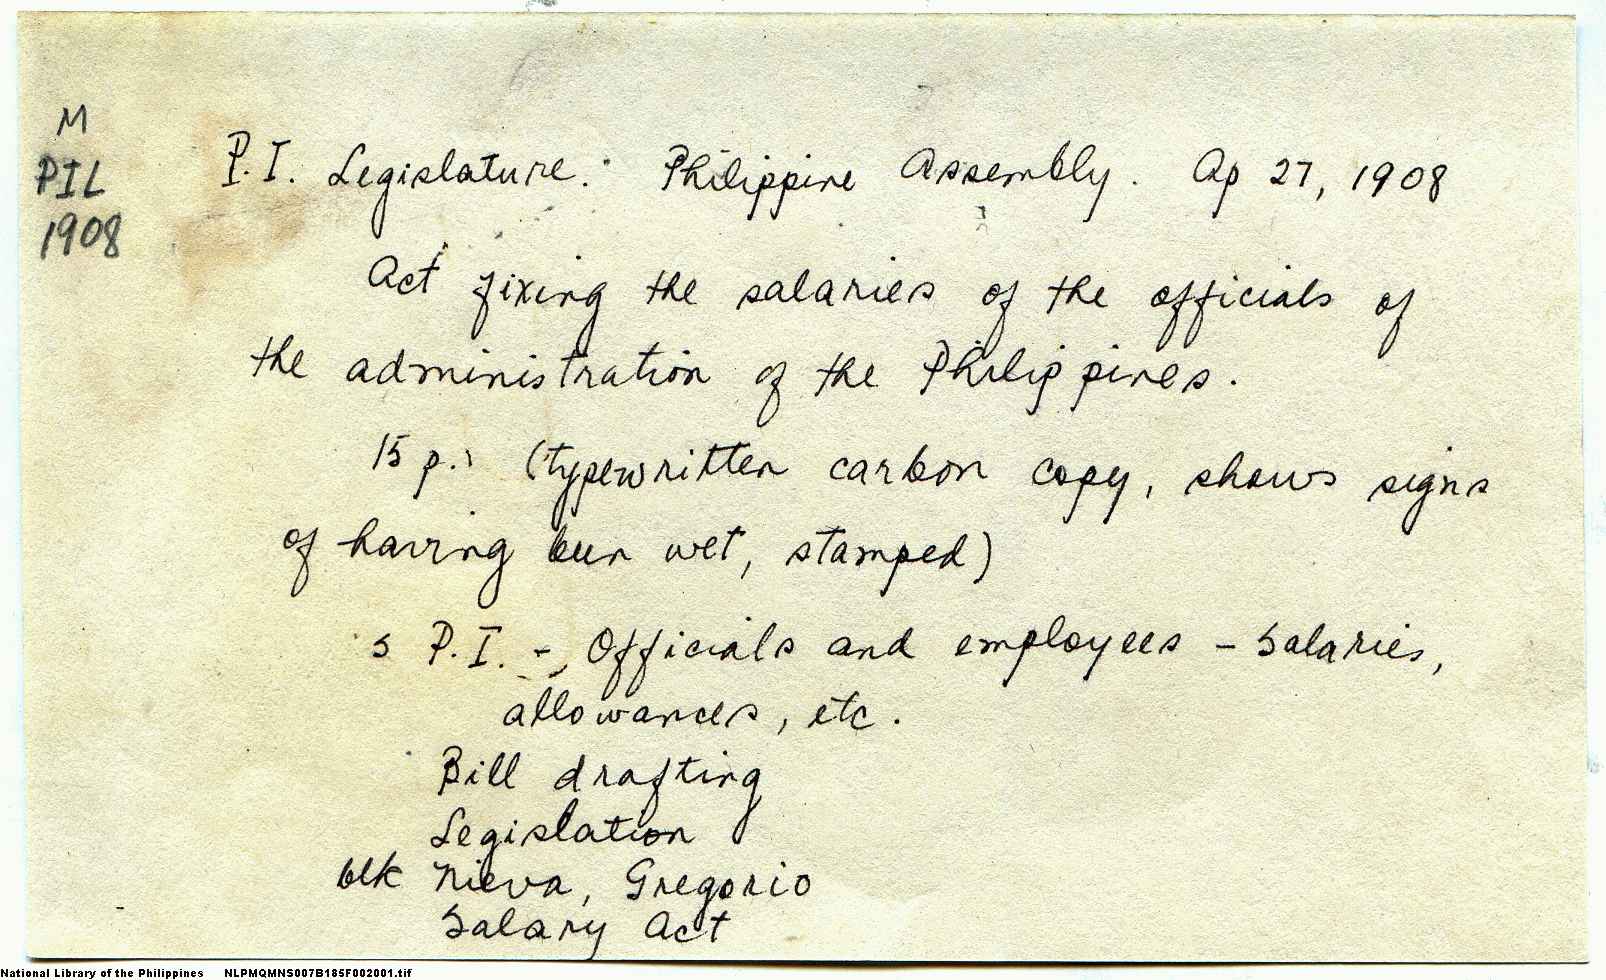 M
PIL
1908
P.I. Legislature. Philippine Assembly. Ap 27, 1908
Act fixing the salaries of the officials of
the administration of the Philippines.
15 p. (typewritten carbon copy, shows signs
of having been wet, stamped)
s P.I. - Officials and employees - Salaries,
allowances, etc.
Bill drafting
Legislation
blk Nieva, Gregorio
Salary Act
National Library of the Philippines NLPMQMNS007B185F002001.tif